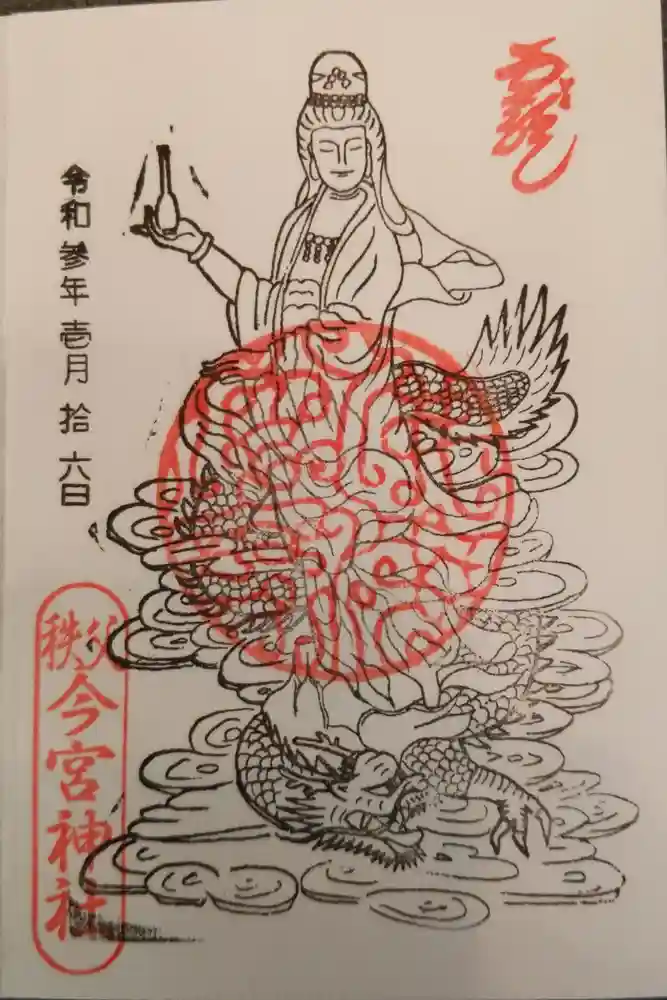 令和参年壱月拾六日
秩父今宮神社